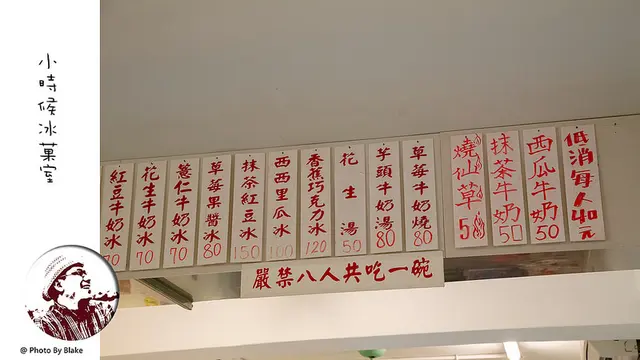 小時候冰菓室
紅豆牛奶冰 70
花生牛奶冰 70
薏仁牛奶冰 70
草莓果醬冰 80
抹茶紅豆冰 150
西西里瓜冰 100
香蕉巧克力冰 120
花生湯 50
芋頭牛奶湯 80
草莓牛奶燒 80
燒仙草 50
抹茶牛奶 50
西瓜牛奶 50
低消每人40元
嚴禁八人共吃一碗
@ Photo By Blake